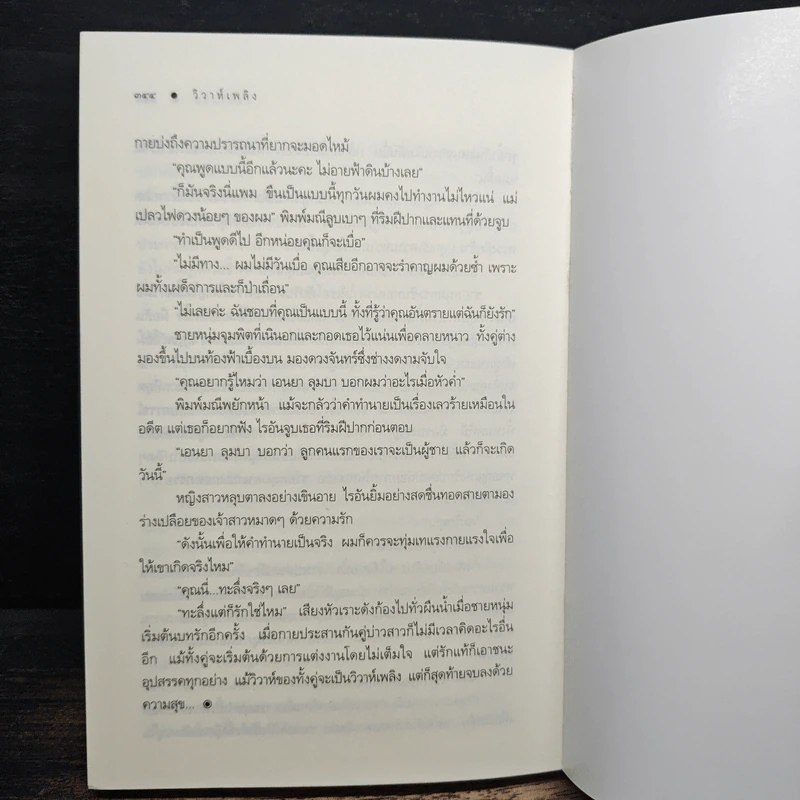 ๓๔๔ ● วิวาห์เพลิง
กายบ่งถึงความปรารถนาที่ยากจะมอดไหม้
“คุณพูดแบบนี้อีกแล้วนะคะ ไม่อายฟ้าดินบ้างเลย”
“ก็มันจริงนี่แพม ขืนเป็นแบบนี้ทุกวันผมคงไปทำงานไม่ไหวแน่ แม่
เปลวไฟดวงน้อยๆ ของผม” พิมพ์มณีลูบเบาๆ ที่ริมฝีปากและแทนที่ด้วยจูบ
“ทำเป็นพูดดีไป อีกหน่อยคุณก็จะเบื่อ”
“ไม่มีทาง... ผมไม่มีวันเบื่อ คุณเสียอีกอาจจะรำคาญผมด้วยซ้ำ เพราะ
ผมทั้งเผด็จการและก็ป่าเถื่อน”
“ไม่เลยค่ะ ฉันชอบที่คุณเป็นแบบนี้ ทั้งที่รู้ว่าคุณอันตรายแต่ฉันก็ยังรัก”
ชายหนุ่มจุมพิตที่เนินอกและกอดเธอไว้แน่นเพื่อคลายหนาว ทั้งคู่ต่าง
มองขึ้นไปบนท้องฟ้าเบื้องบน มองดวงจันทร์ซึ่งช่างงดงามจับใจ
“คุณอยากรู้ไหมว่า เอนยา ลุมบา บอกผมว่าอะไรเมื่อหัวค่ำ”
พิมพ์มณีพยักหน้า แม้จะกลัวว่าคำทำนายเป็นเรื่องเลวร้ายเหมือนใน
อดีต แต่เธอก็อยากฟัง ไรอันจูบเธอที่ริมฝีปากก่อนตอบ
“เอนยา ลุมบา บอกว่า ลูกคนแรกของเราจะเป็นผู้ชาย แล้วก็จะเกิด
วันนี้”
หญิงสาวหลุบตาลงอย่างเขินอาย ไรอันยิ้มอย่างสดชื่นทอดสายตามอง
ร่างเปลือยของเจ้าสาวหมาดๆ ด้วยความรัก
“ดังนั้นเพื่อให้คำทำนายเป็นจริง ผมก็ควรจะทุ่มเทแรงกายแรงใจเพื่อ
ให้เขาเกิดจริงไหม”
“คุณนี่...ทะลึ่งจริงๆ เลย”
“ทะลึ่งแต่ก็รักใช่ไหม” เสียงหัวเราะดังก้องไปทั่วผืนน้ำเมื่อชายหนุ่ม
เริ่มต้นบทรักอีกครั้ง เมื่อกายประสานกันคู่บ่าวสาวก็ไม่มีเวลาคิดอะไรอื่น
อีก แม้ทั้งคู่จะเริ่มต้นด้วยการแต่งงานโดยไม่เต็มใจ แต่รักแท้ก็เอาชนะ
อุปสรรคทุกอย่าง แม้วิวาห์ของทั้งคู่จะเป็นวิวาห์เพลิง แต่ก็สุดท้ายจบลงด้วย
ความสุข... ◉